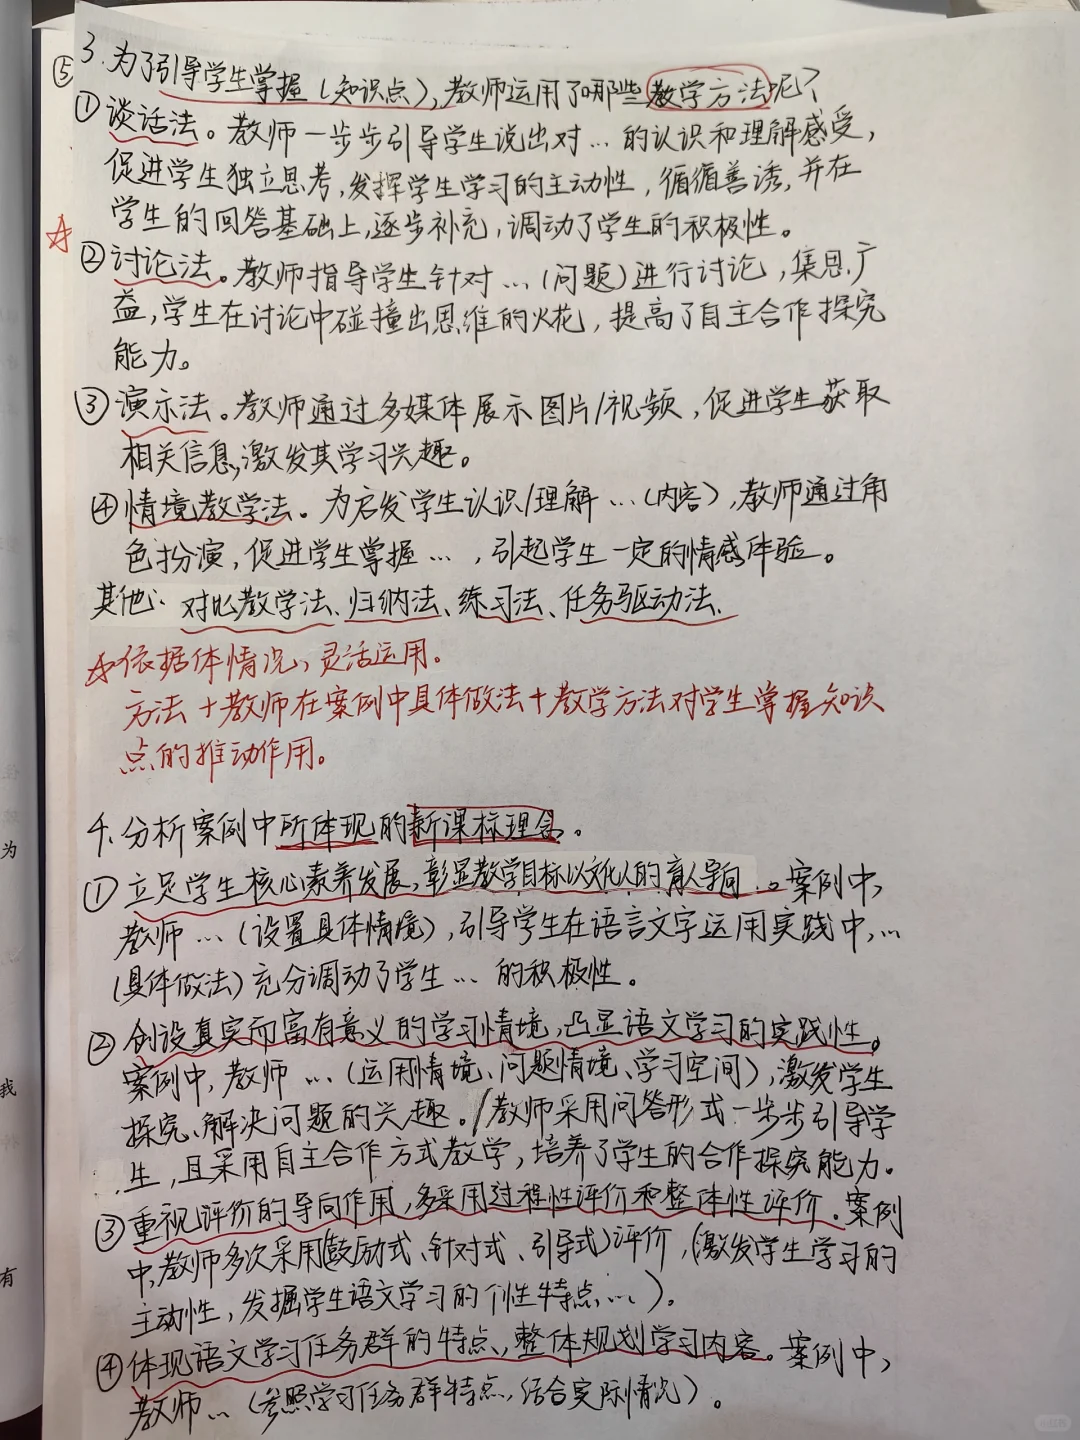 ⑤
3.为了引导学生掌握(知识点),教师运用了哪些教学方法呢?
①谈话法。教师一步步引导学生说出对…的认识和理解感受,
促进学生独立思考,发挥学生学习的主动性,循循善诱,并在
学生的回答基础上,逐步补充,调动了学生的积极性。
②讨论法。教师指导学生针对…(问题)进行讨论,集思广
益,学生在讨论中碰撞出思维的火花,提高了自主合作探究
能力。
③演示法。教师通过多媒体展示图片/视频,促进学生获取
相关信息,激发其学习兴趣。
④情境教学法。为启发学生认识/理解…(内容),教师通过角
色扮演,促进学生掌握…,引起学生一定的情感体验。
其他:对比教学法、归纳法、练习法、任务驱动法、
☆依据体情况,灵活运用。
方法+教师在案例中具体做法+教学方法对学生掌握知识
点的推动作用。
4.分析案例中所体现的新课标理念。
①立足学生核心素养发展,彰显教学目标以文化人的育人导向。案例中,
教师…(设置具体情境),引导学生在语言文字运用实践中,…
(具体做法)充分调动了学生…的积极性。
②创设真实而富有意义的学习情境,凸显语文学习的实践性。
案例中,教师…(运用情境、问题情境、学习空间),激发学生
探究、解决问题的兴趣。/教师采用问答形式一步步引导学
生,且采用自主合作方式教学,培养了学生的合作探究能力。
③重视评价的导向作用,多采用过程性评价和整体性评价.案例
中,教师多次采用(鼓励式、针对式、引导式)评价,(激发学生学习的
主动性,发掘学生语文学习的个性特点,…)。
④体现语文学习任务群的特点,整体规划学习内容。案例中,
教师…(参照学习任务群特点,结合实际情况)。
为
我
有